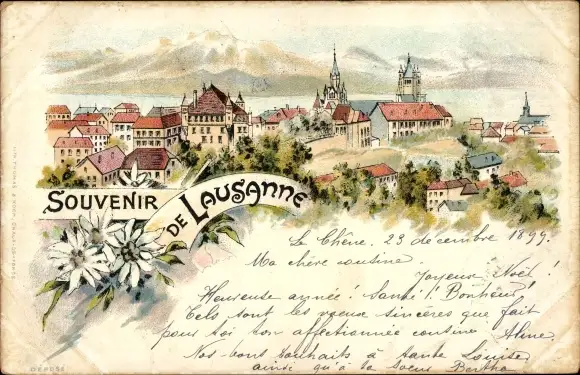 SOUVENIR
DE LAUSANNE
Le Chêne, 23 décembre 1899.
Ma chère cousine.
Joyeux Noël !
Heureuse année ! Santé ! Bonheur !
Tels sont les voeux sincères que fait
pour toi ton affectionnée cousine Aline.
Nos bons souhaits à tante Louise
ainsi qu'à ta soeur Bertha
DÉPOSÉ